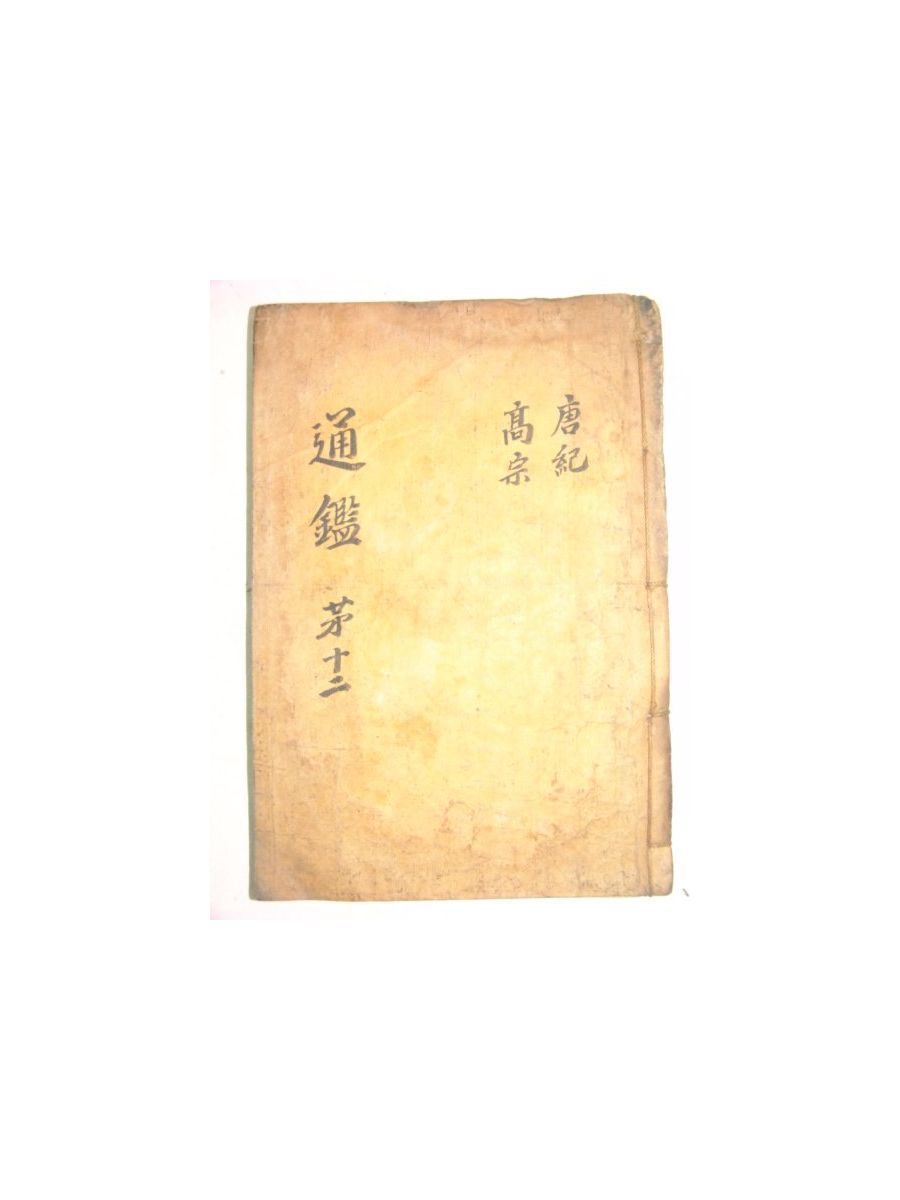 唐紀
髙宗
通鑑 苐十二